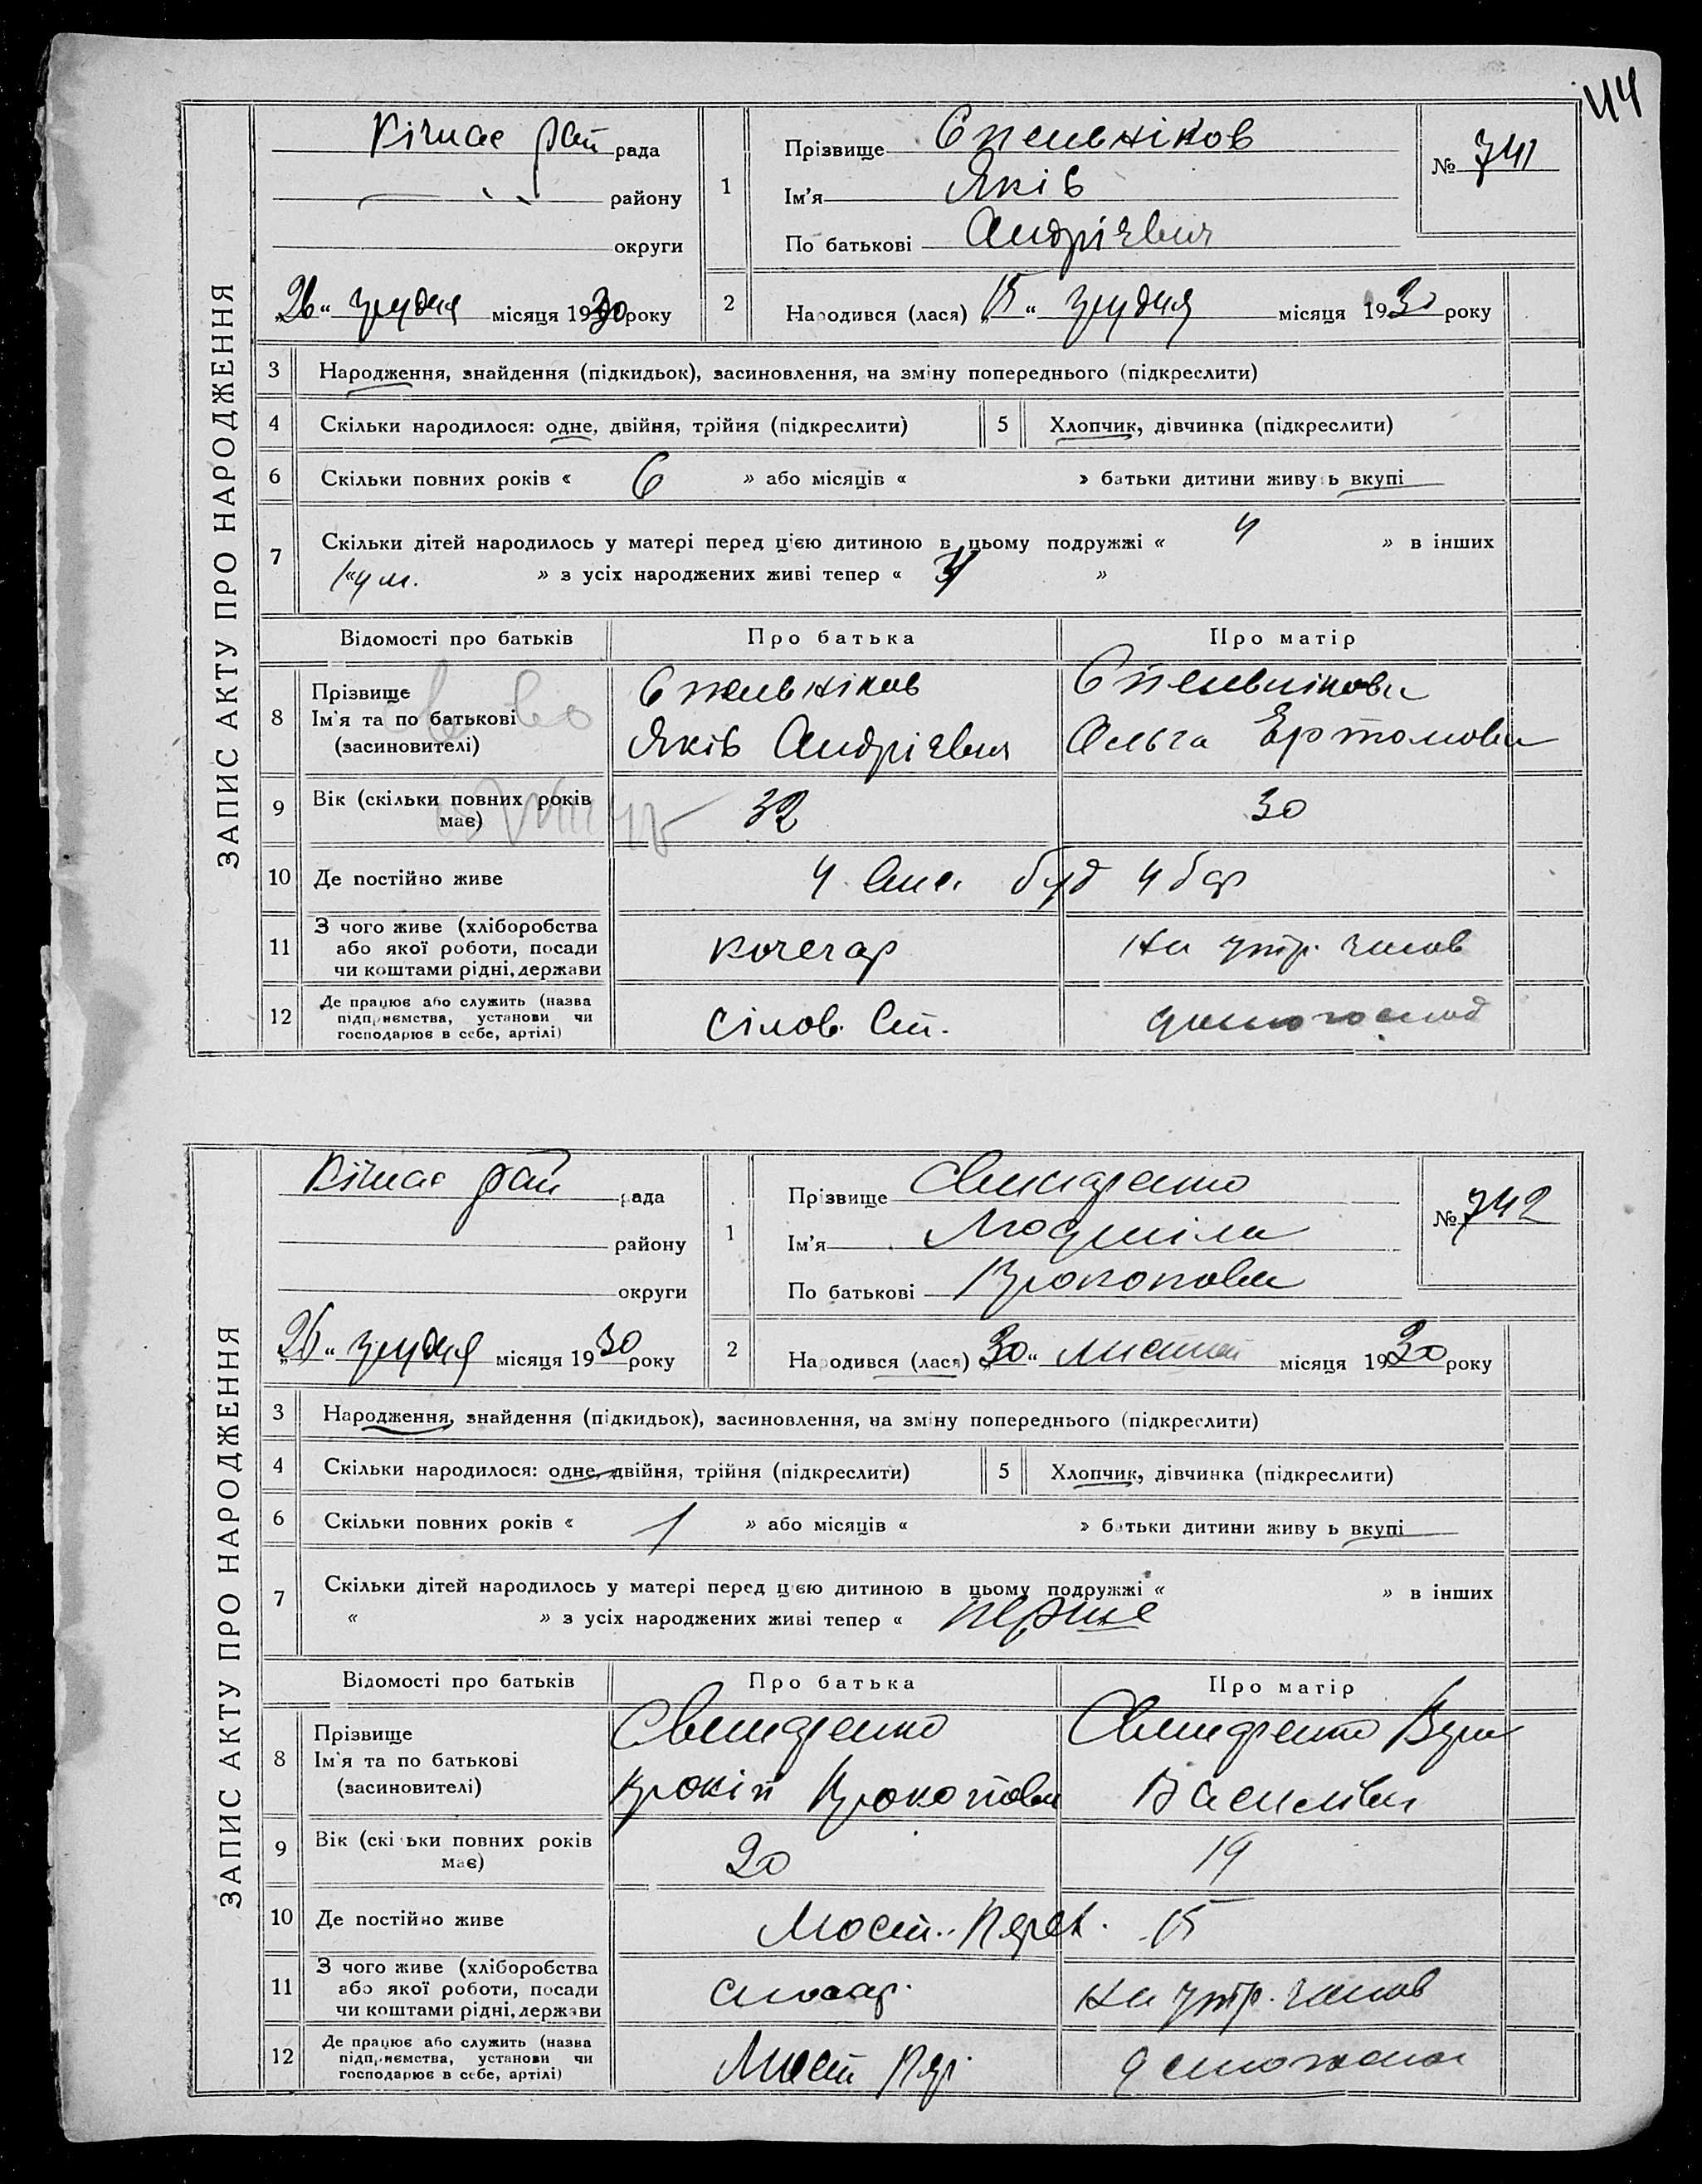 44
ЗАПИС АКТУ ПРО НАРОДЖЕННЯ
рай рада
району
округи
"26" грудня місяця 1930 року
1 Прізвище
Ім'я Яків
По батькові Андрієвич
№ 741
2 Народився (лася) "15" грудня місяця 1930 року
3 Народження, знайдення (підкидьок), засиновлення, на зміну попереднього (підкреслити)
4 Скільки народилося: одне, двійня, трійня (підкреслити) 5 Хлопчик, дівчинка (підкреслити)
6 Скільки повних років « 6 » або місяців « » батьки дитини живуть вкупі
7 Скільки дітей народилось у матері перед цією дитиною в цьому подружжі « 4 » в інших
» з усіх народжених живі тепер « »
Відомості про батьків Про батька Про матір
8 Прізвище
Ім'я та по батькові Яків Андрієвич Ольга
(засновителі)
9 Вік (скільки повних років має) 32 30
10 Де постійно живе 4 буд 4
11 З чого живе (хліборобства або якої роботи, посади чи коштами рідні, держави кочегар на утр. чолов
12 Де працює або служить (назва підприємства, установи чи господарює в себе, артілі) Сілов. Ст. домогоспод
ЗАПИС АКТУ ПРО НАРОДЖЕННЯ
рай рада
району
округи
"26" грудня місяця 1930 року
1 Прізвище
Ім'я Людміла
По батькові Прокоповна
№ 742
2 Народився (лася) "30" листоп місяця 1930 року
3 Народження, знайдення (підкидьок), засиновлення, на зміну попереднього (підкреслити)
4 Скільки народилося: одне, двійня, трійня (підкреслити) 5 Хлопчик, дівчинка (підкреслити)
6 Скільки повних років « 1 » або місяців « » батьки дитини живуть вкупі
7 Скільки дітей народилось у матері перед цією дитиною в цьому подружжі « » в інших
« » з усіх народжених живі тепер « перше
Відомості про батьків Про батька Про матір
8 Прізвище
Ім'я та по батькові Прокіп Василівн
(засиновителі)
9 Вік (скільки повних років має) 20 19
10 Де постійно живе Мост. 15
11 З чого живе (хліборобства або якої роботи, посади чи коштами рідні, держави слюсар. на утр. чолов
12 Де працює або служить (назва підприємства, установи чи господарює в себе, артілі) Мост